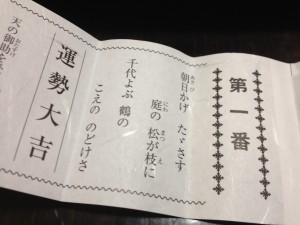 第一番
朝日かげ たゞさす
庭の 松が枝に
千代よぶ 鶴の
こえの のどけさ
運勢大吉
天の御助を